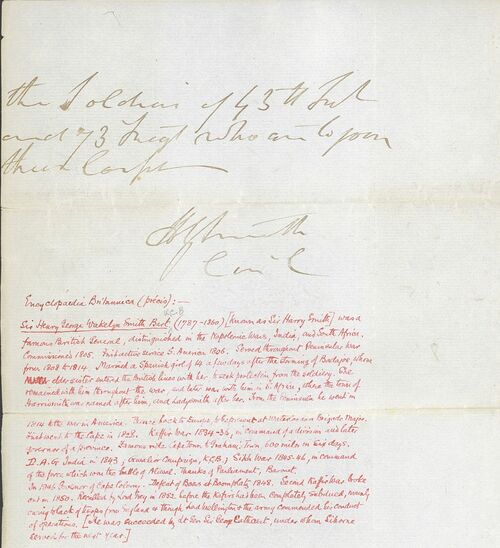 the Soldiers of 45th Regt
and 73 Regt who are to join
their Corps
HG Smith
Encyclopædia Britannica (précis):—
K.C.B
Sir Henry George Wakelyn Smith Bart (1787-1860) [known as Sir Harry Smith] was a
famous British General, distinguished in the Napoleonic Wars, India, and South Africa.
Commissioned 1805. First active service S. America 1806. Served throughout Peninsular War
from 1808 to 1814. Married a Spanish girl of 14 a few days after the storming of Badajoz, whose
elder sister entered the British lines with her to seek protection from the soldiery. She
remained with him throughout the war, and later was with him in S. Africa, where the town of
Harrismith was named after him, and Ladysmith after her. From the Peninsula he went in
1814 to the war in America. Thence back to Europe, to be present at Waterloo as a Brigade Major.
Next went to the Cape in 1828. Kaffir War 1834-36, in command of a division and later
governor of a province. Famous ride Cape Town to Graham's Town 600 miles in 6 days.
D.A.G India in 1843; Gwalior Campaign, K.C.B; Sikh War 1845-46, in command
of the force which won the battle of Aliwal. Thanks of Parliament, Baronet.
In 1846 Governor of Cape Colony. Defeat of Boers at Boomplatz, 1848. Second Kaffir War broke
out in 1850. Recalled by Lord Grey in 1852, before the Kaffirs had been completely subdued, mainly
owing to lack of troops from England, though Wellington & the army commended his conduct
of operations. [He was succeeded by Lt Gen Sir George Cathcart, under whom
served for the next year.]